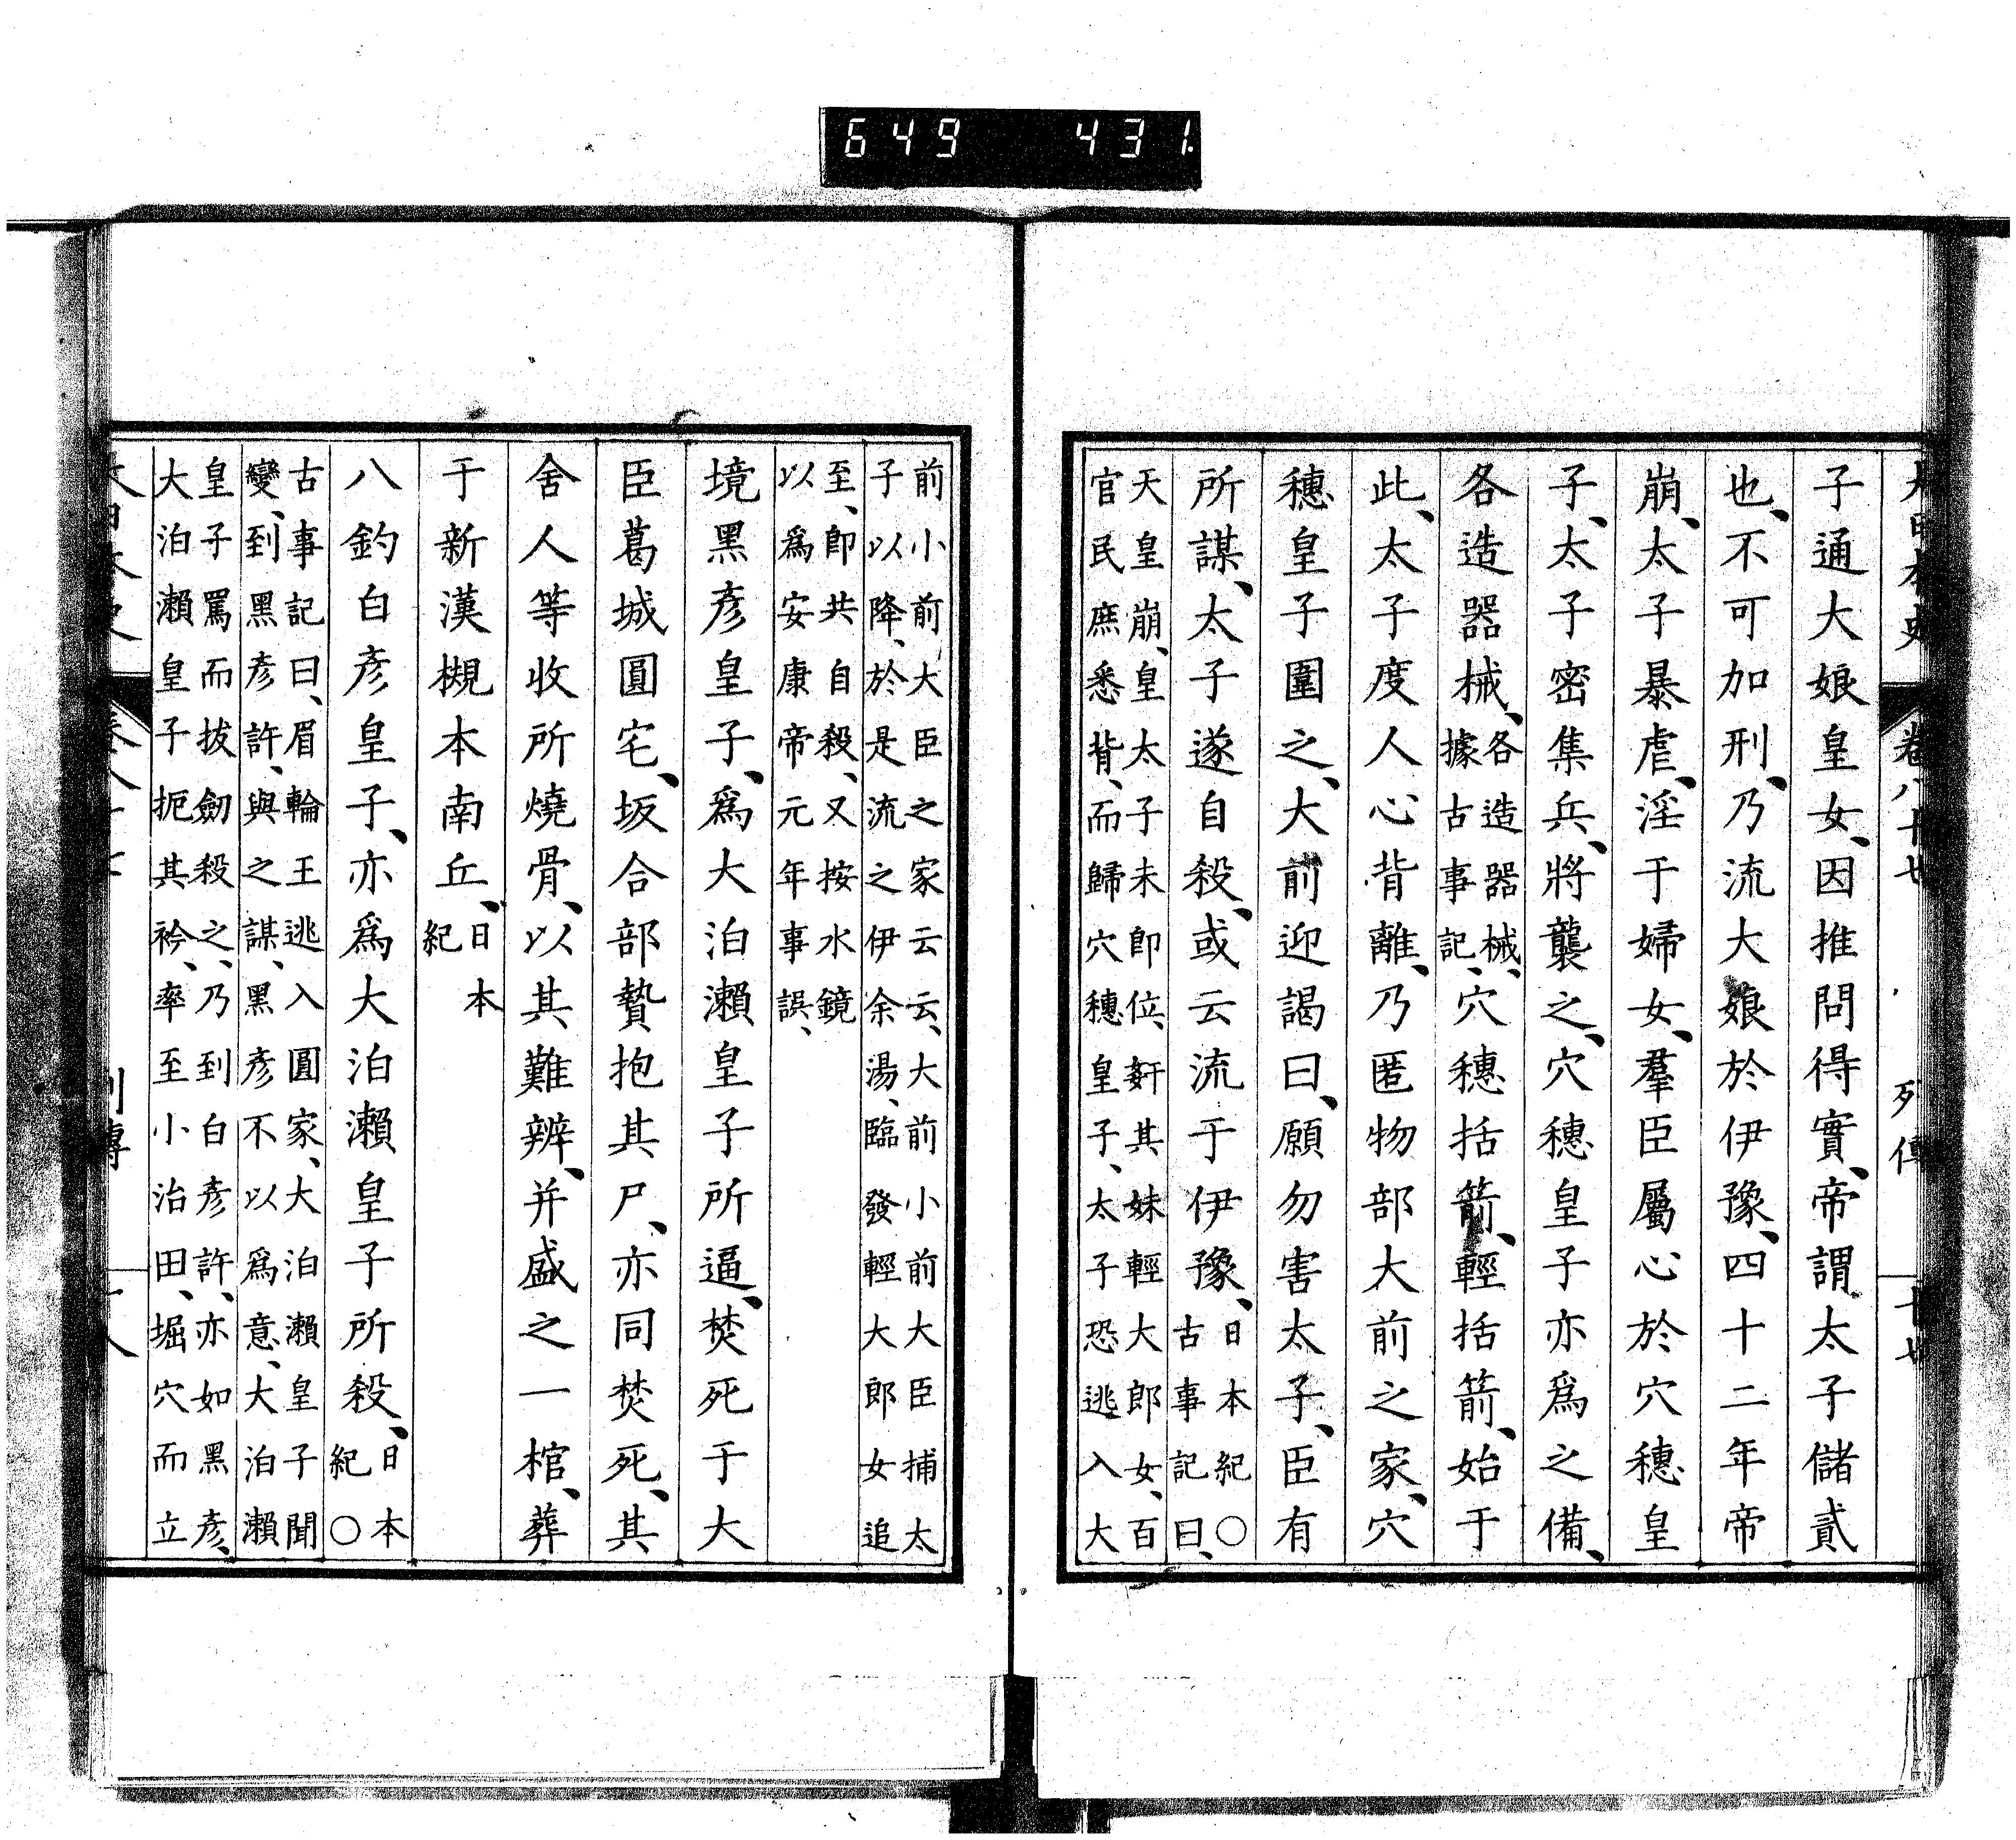 649 431
大日本史 卷八十七 列傳 十七
子通大娘皇女、因推問得實、帝謂太子儲貳
也、不可加刑、乃流大娘於伊豫、四十二年帝
崩、太子暴虐、淫于婦女、羣臣屬心於穴穗皇
子、太子密集兵、將襲之、穴穗皇子亦爲之備、
各造器械、各造器械、據古事記、穴穗括箭、輕括箭、始于
此、太子度人心背離、乃匿物部大前之家、穴
穗皇子圍之、大前迎謁曰、願勿害太子、臣有
所謀、太子遂自殺、或云流于伊豫、日本紀○古事記曰、
天皇崩、皇太子未卽位、姧其妹輕大郎女、百
官民庶悉背、而歸穴穗皇子、太子恐逃入大
前小前大臣之家云云、大前小前大臣捕太
子以降、於是流之伊余湯、臨發輕大郎女追
至、卽共自殺、又按水鏡
以爲安康帝元年事誤、
境黑彥皇子、爲大泊瀨皇子所逼、焚死于大
臣葛城圓宅、坂合部贄抱其尸、亦同焚死、其
舍人等收所燒骨、以其難辨、并盛之一棺、葬
于新漢槻本南丘、日本紀
八釣白彥皇子、亦爲大泊瀨皇子所殺、日本紀○
古事記曰、眉輪王逃入圓家、大泊瀨皇子聞
變、到黑彥許、與之謀、黑彥不以爲意、大泊瀨
皇子罵而拔劒殺之、乃到白彥許、亦如黑彥、
大泊瀨皇子扼其衿、率至小治田、堀穴而立